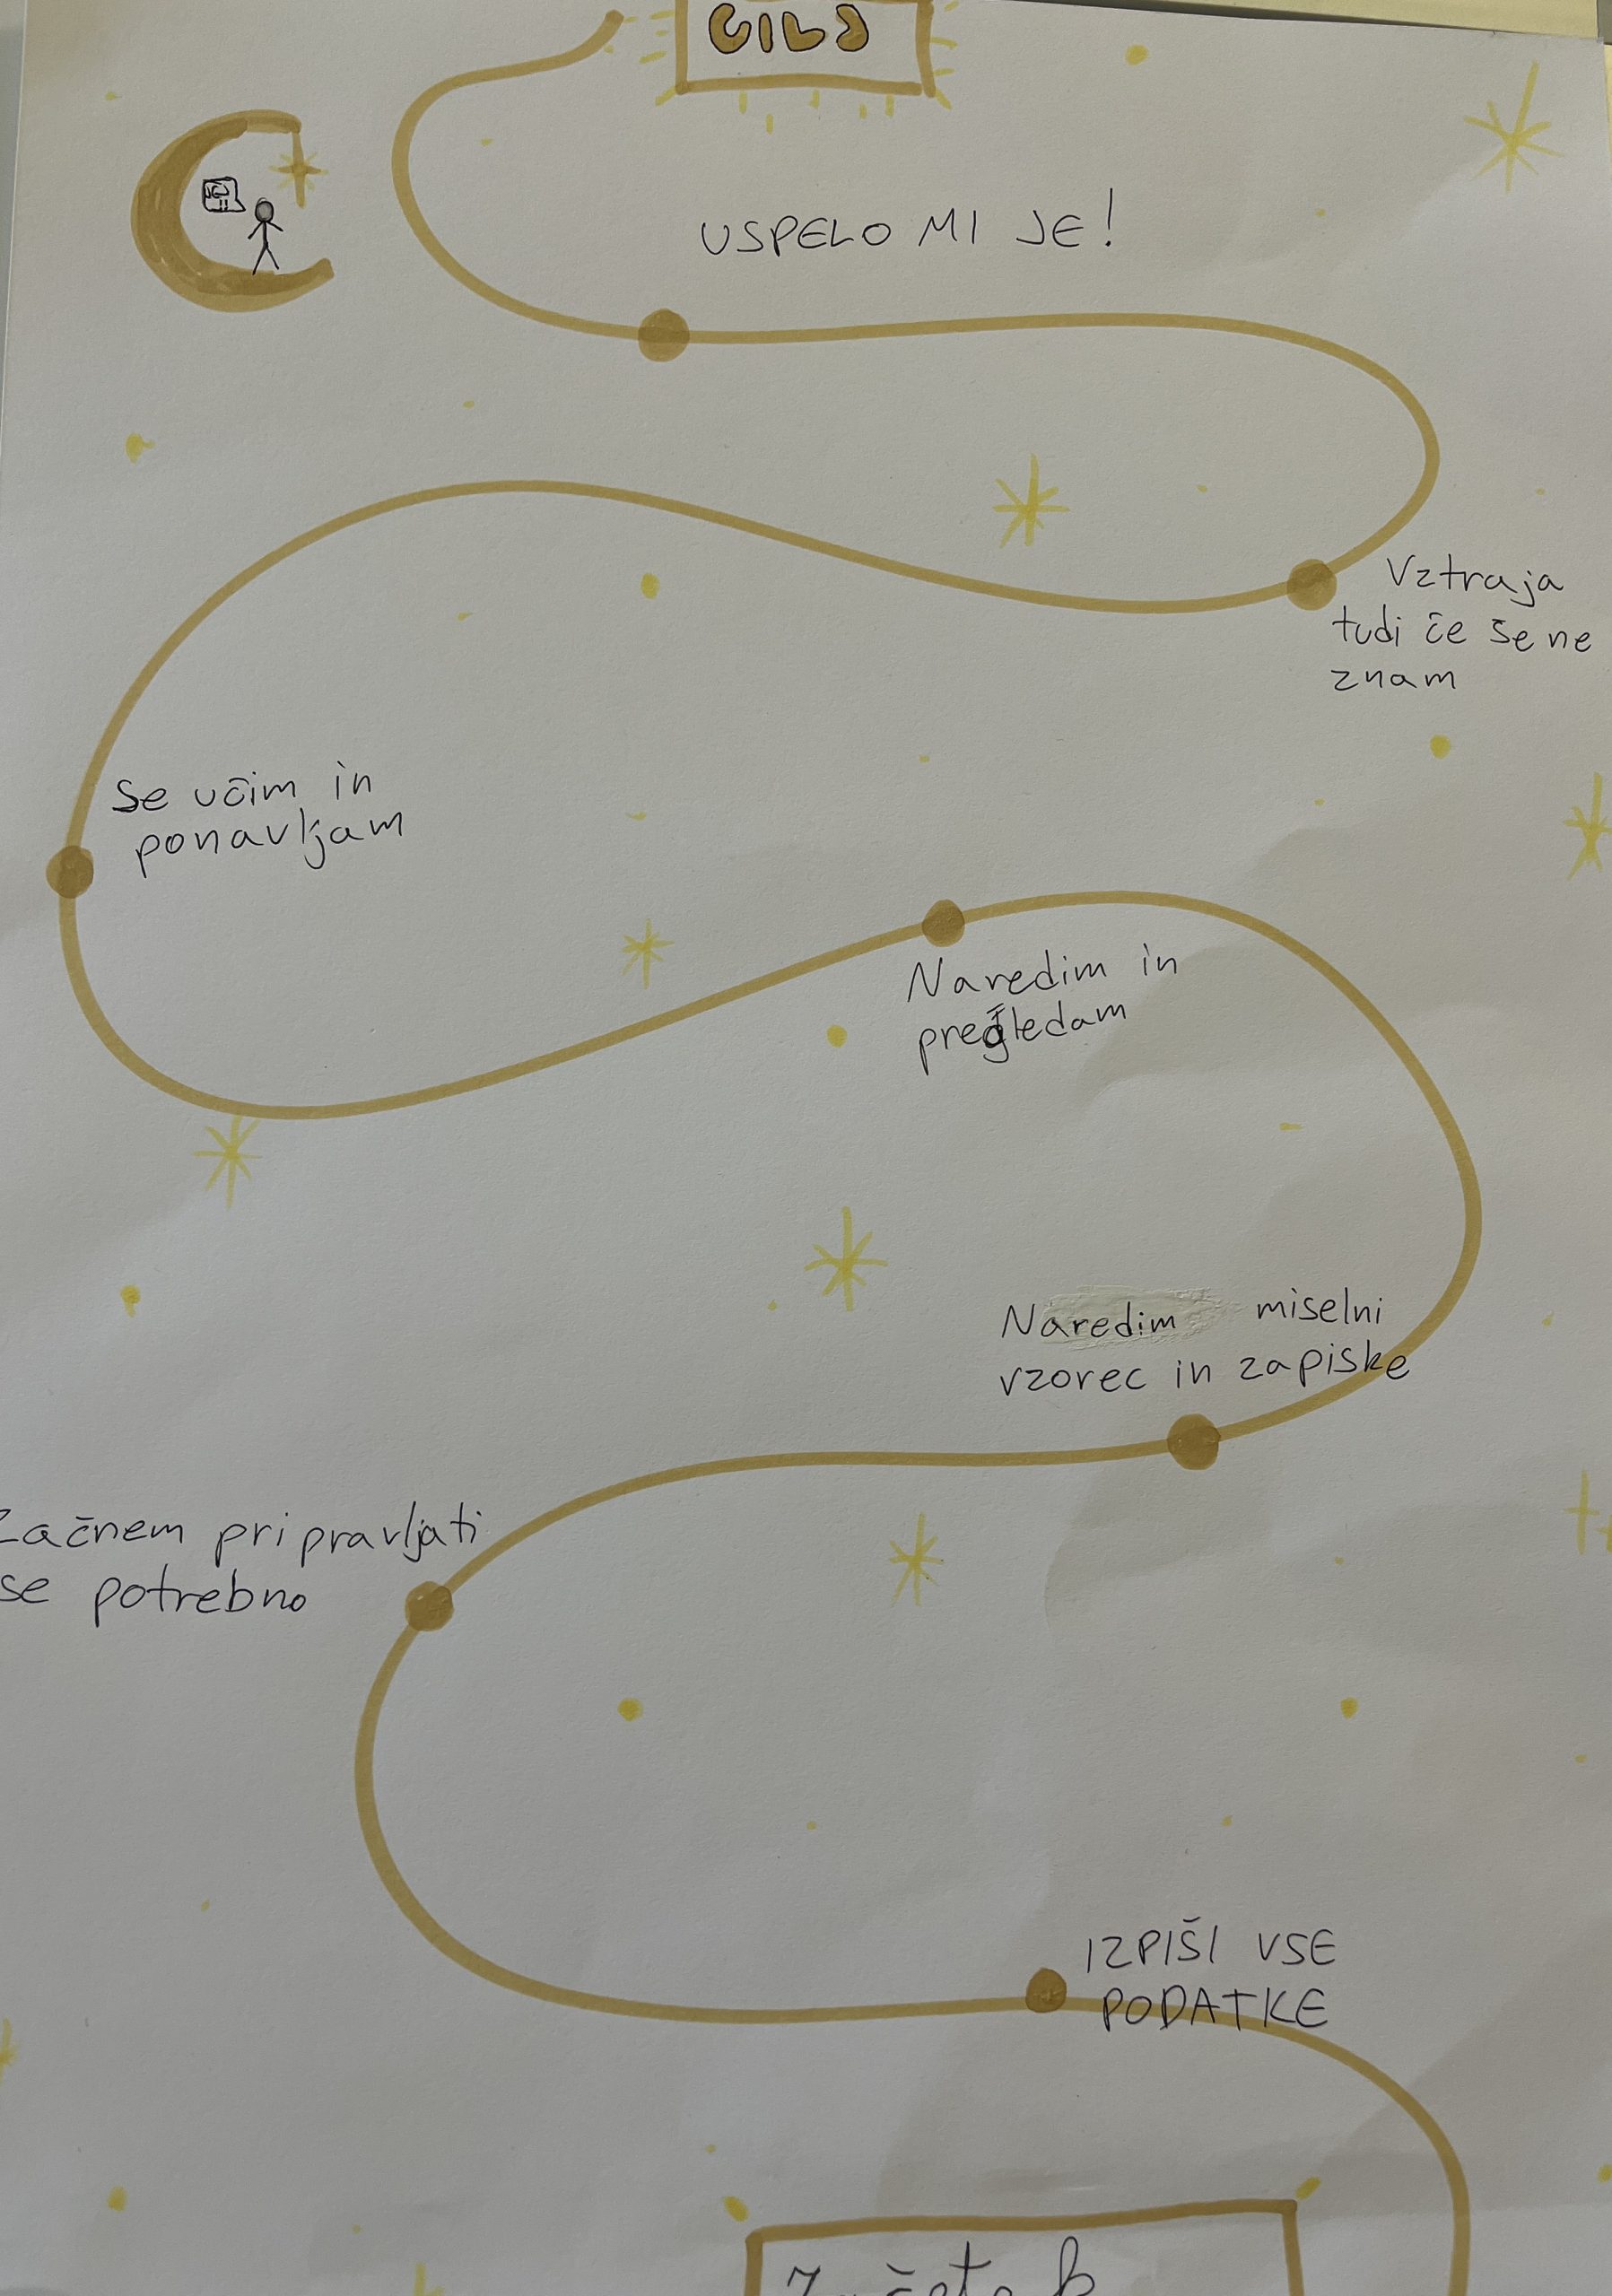 CILJ
USPELO MI JE!
Vztraja
tudi če še ne
znam
Se učim in
ponavljam
Naredim in
pregledam
Naredim miselni
vzorec in zapiske
Začnem pripravljati
se potrebno
IZPIŠI VSE
PODATKE
Začetek